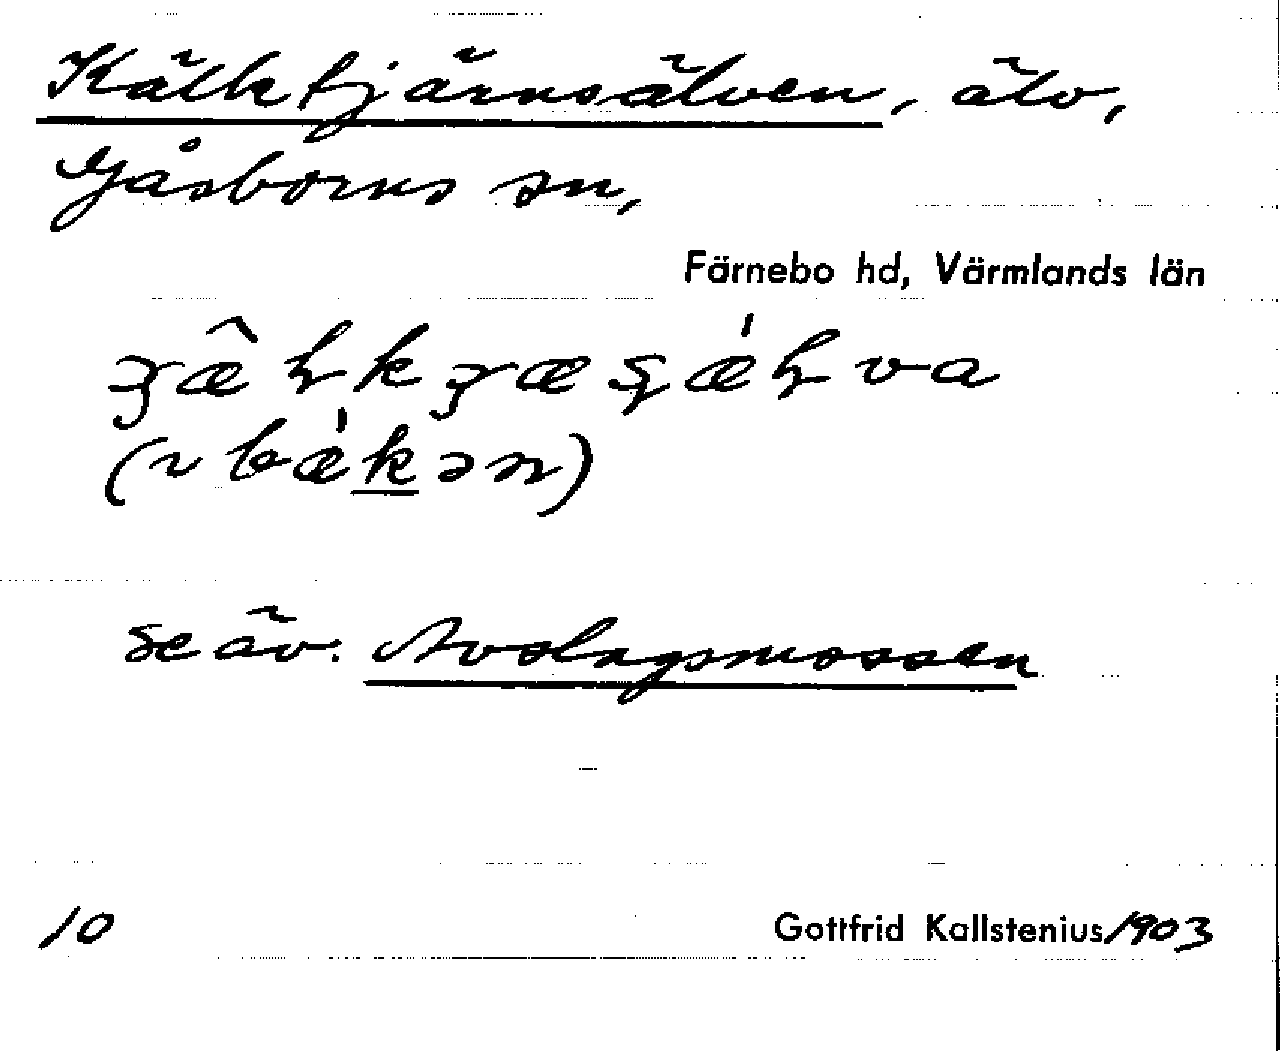 Kälktjärnsälven, älv,
Gåsborns sn,
Färnebo hd, Värmlands län
se äv. Avslagsmossen
10
Gottfrid Kallstenius/1903